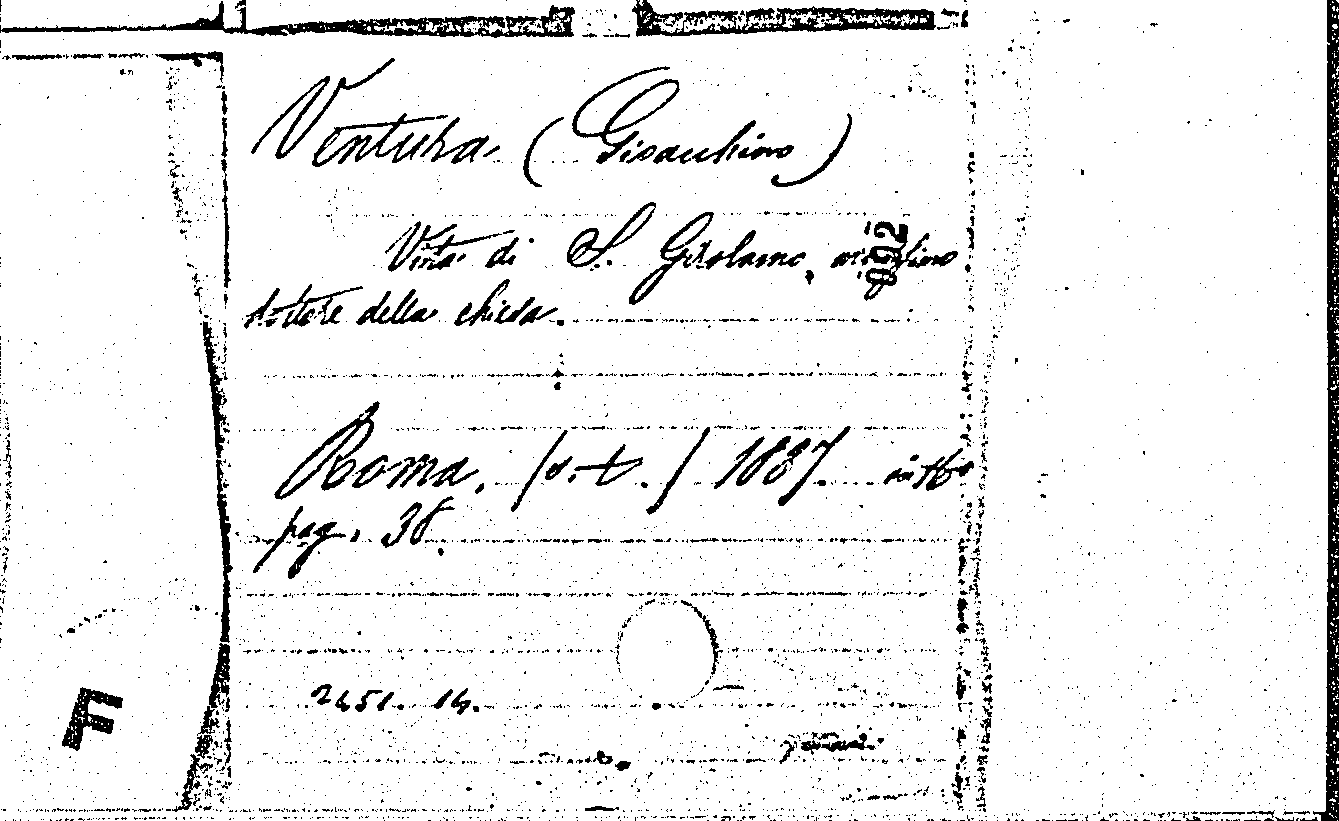 Ventura (Gioacchino)
Vita di S. Girolamo,
dottore della chiesa.
Roma, (s.t.) 1837. in 16º
pag. 38.
2451. 14.
092
F